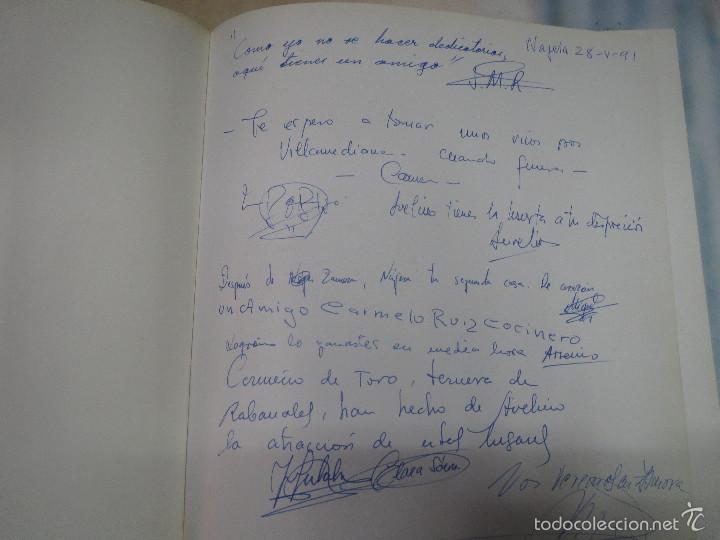 "Como yo no se hacer dedicatorias, Najera 28-V-91
aquí tienes un amigo"
J.M.R
- Te espero a tomar unos vinos por
Villamediana - cuando quieras -
- Carmen -
Avelino tienes la huerta a tu disposición
Aurelio
Después de Zamora, Nájera tu segunda casa. De corazón
un Amigo Carmelo Ruiz Cocinero
lo ganastes en media hora Arsenio
Cermeño de Toro, ternera de
Rabanales, han hecho de Avelino
la atracción de estos lugares
Clara
Nos veremos en Zamora
© todocoleccion.net